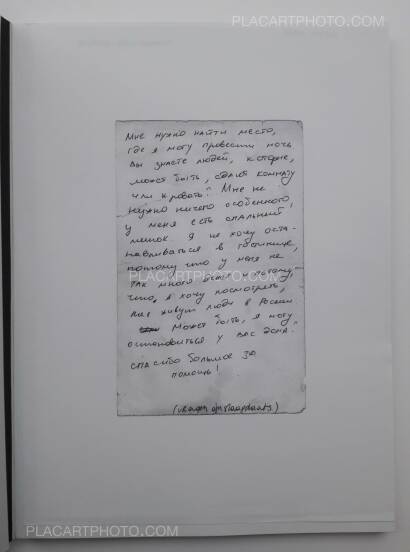 PLACARTPHOTO.COM
PLACARTPHOTO.COM
Мне нужно найти место,
где я могу провести ночь
Вы знаете людей, которые,
может быть, сдают комнату
или кровать? Мне не
нужно ничего особенного,
у меня есть спальный
мешок. Я не хочу оста-
навливаться в гостинице,
потому что у меня не
так много денег и потому,
что я хочу посмотреть,
как живут люди в России
Может быть, я могу
остановиться у вас дома?
спасибо большое за
помощь!
(vragen om slaapplaats)
PLACARTPHOTO.COM
PLACARTPHOTO.COM